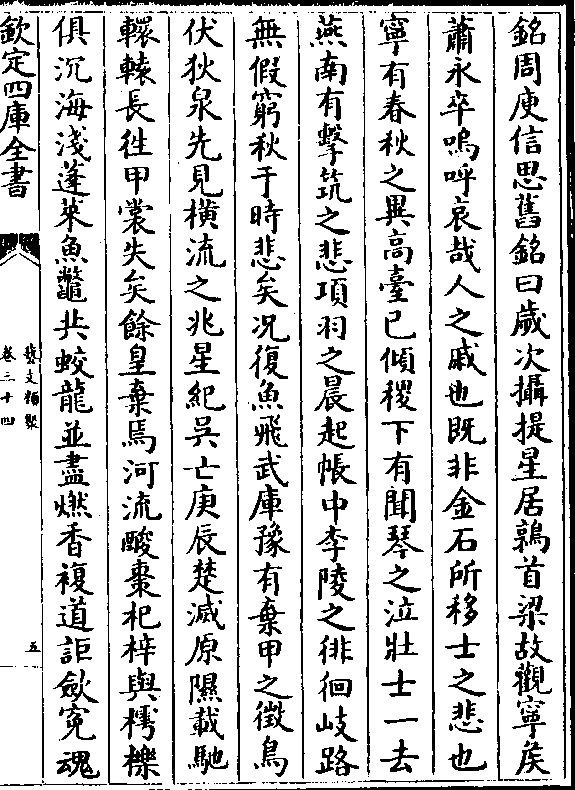 銘周庾信思舊銘曰歲次攝提星居鶉首梁故觀寧矦
蕭永卒嗚呼哀哉人之戚也既非金石所移士之悲也
寧有春秋之異高臺已傾稷下有聞琴之泣壯士一去
燕南有擊筑之悲項羽之晨起帳中李陵之徘徊岐路
無假窮秋于時悲矣况復魚飛武庫豫有棄甲之徵鳥
伏狄泉先見橫流之兆星紀吳亡庚辰楚滅原隰載馳
轘轅長徃甲裳失矣餘皇棄焉河流酸棗杞梓與樗櫟
俱沉海淺蓬萊魚鼈共蛟龍並盡燃香複道詎歛寃魂
欽定四庫全書
藝文類聚
卷三十四
五